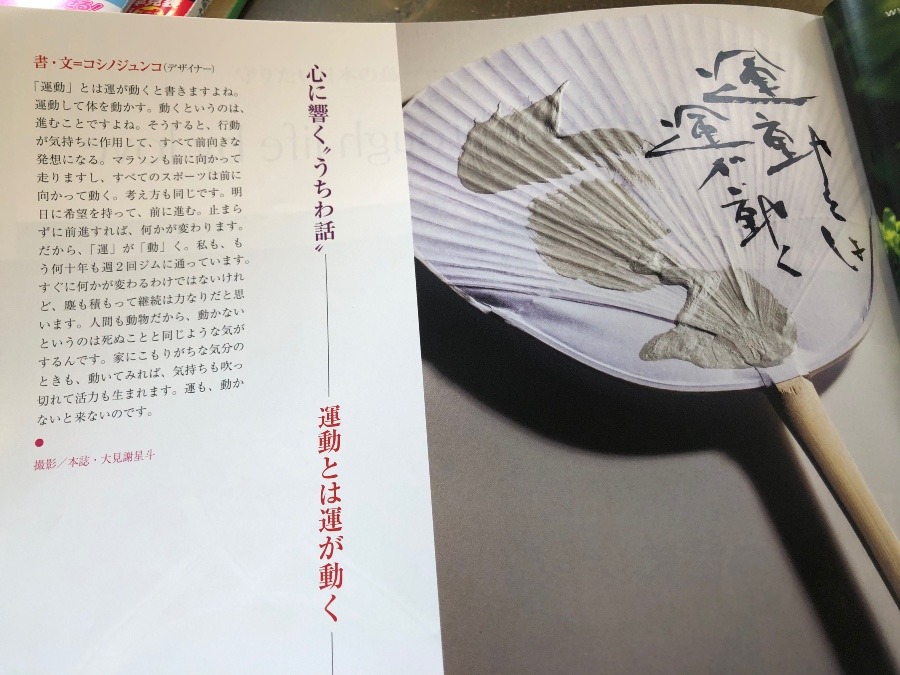 書・文=コシノジュンコ(デザイナー)
「運動」とは運が動くと書きますよね。
運動して体を動かす。動くというのは、
進むことですよね。そうすると、行動
が気持ちに作用して、すべて前向きな
発想になる。マラソンも前に向かって
走りますし、すべてのスポーツは前に
向かって動く。考え方も同じです。明
日に希望を持って、前に進む。止まら
ずに前進すれば、何かが変わります。
だから、「運」が「動」く。私も、も
う何十年も週2回ジムに通っています。
すぐに何かが変わるわけではないけれ
ど、塵も積もって継続は力なりだと思
います。人間も動物だから、動かない
というのは死ぬことと同じような気が
するんです。家にこもりがちな気分の
ときも、動いてみれば、気持ちも吹っ
切れて活力も生まれます。運も、動か
ないと来ないのです。
撮影/本誌・大見謝星斗
心に響く〝うちわ話〟
運動とは運が動く
運動
運が動く